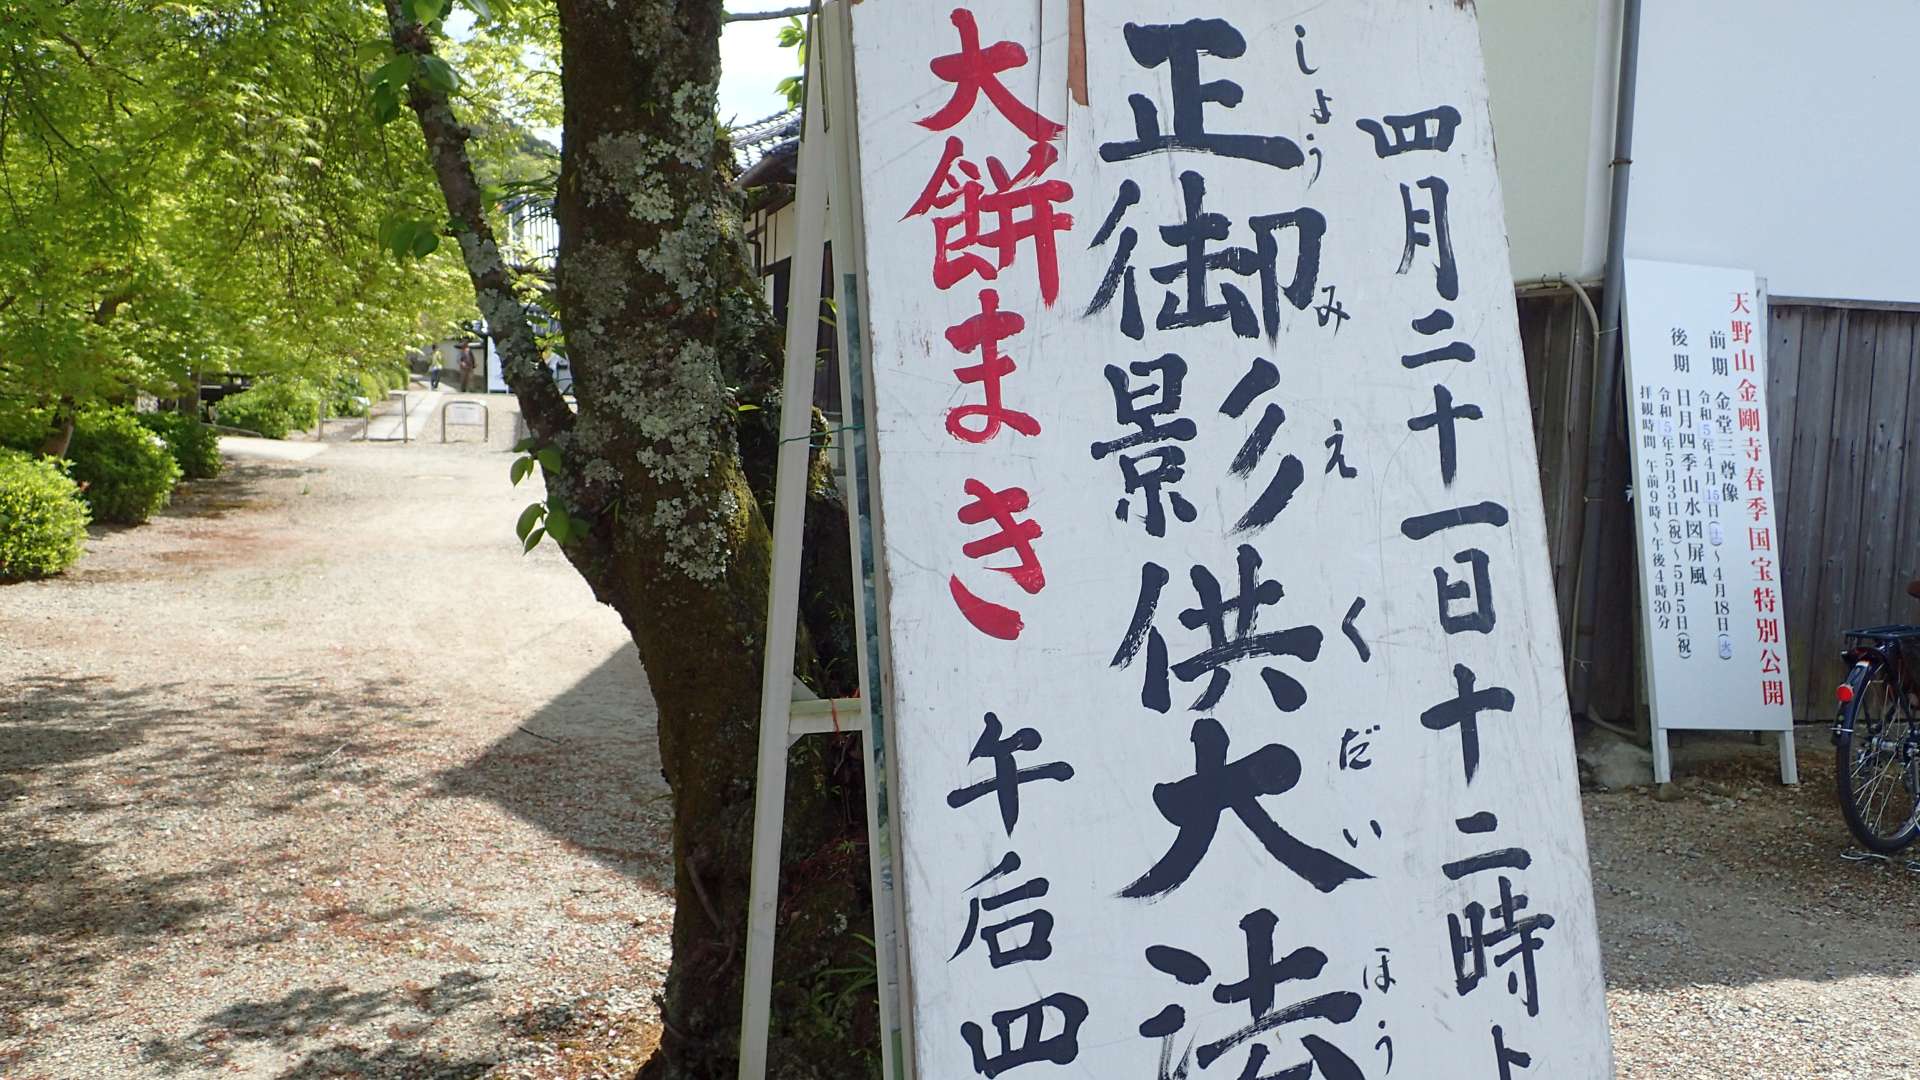 四月二十一日十二時ト
正御影供大法
しょう み え く だい ほう
大餅まき 午后四
天野山金剛寺春季国宝特別公開
前期 金堂三尊像
令和5年4月15日(土)~4月18日(火)
後期 日月四季山水図屏風
令和5年5月3日(祝)~5月5日(祝)
拝観時間 午前9時~午後4時30分